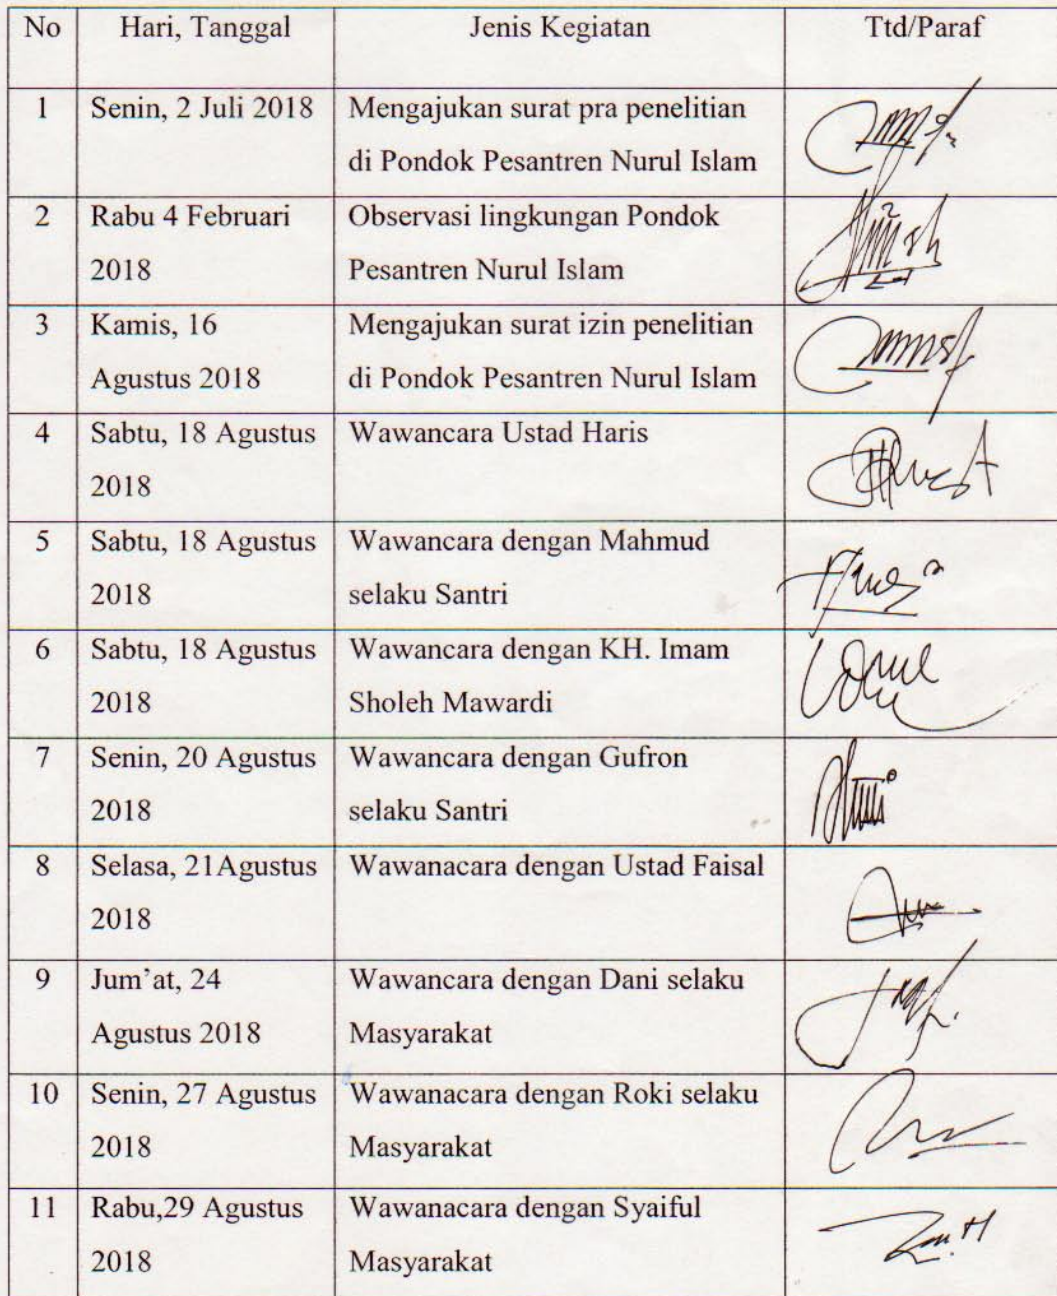 No Hari, Tanggal Jenis Kegiatan Ttd/Paraf
1 Senin, 2 Juli 2018 Mengajukan surat pra penelitian
di Pondok Pesantren Nurul Islam
2 Rabu 4 Februari Observasi lingkungan Pondok
2018 Pesantren Nurul Islam
3 Kamis, 16 Mengajukan surat izin penelitian
Agustus 2018 di Pondok Pesantren Nurul Islam
4 Sabtu, 18 Agustus Wawancara Ustad Haris
2018
5 Sabtu, 18 Agustus Wawancara dengan Mahmud
2018 selaku Santri
6 Sabtu, 18 Agustus Wawancara dengan KH. Imam
2018 Sholeh Mawardi
7 Senin, 20 Agustus Wawancara dengan Gufron
2018 selaku Santri
8 Selasa, 21Agustus Wawanacara dengan Ustad Faisal
2018
9 Jum'at, 24 Wawancara dengan Dani selaku
Agustus 2018 Masyarakat
10 Senin, 27 Agustus Wawanacara dengan Roki selaku
2018 Masyarakat
11 Rabu,29 Agustus Wawanacara dengan Syaiful
2018 Masyarakat